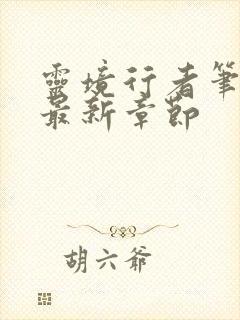 靈境行者筆
最新章節
胡六爺